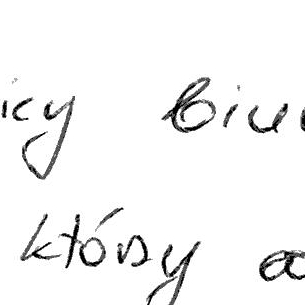 icy biu
który